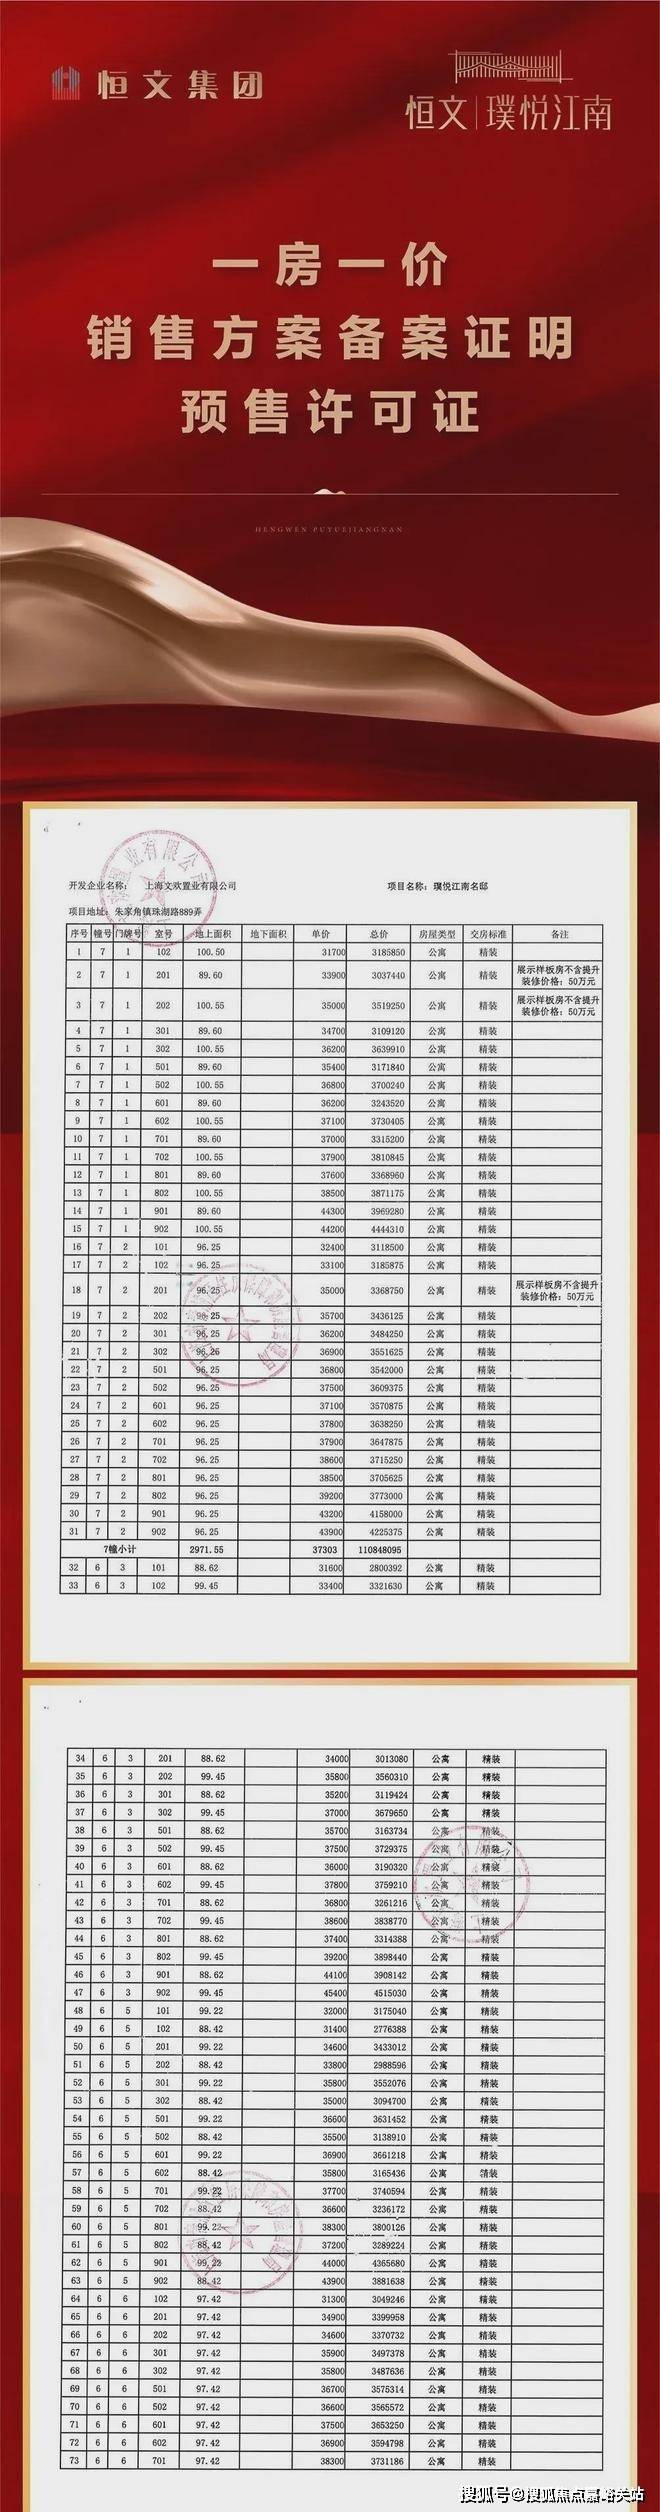 恒文集团
恒文|璞悦江南
一房一价
销售方案备案证明
预售许可证
HENGWEN PUYUEJIANGNAN
开发企业名称： 上海文欢置业有限公司 项目名称：璞悦江南名邸
项目地址：朱家角镇珠湖路889弄
序号 幢号 门牌号 室号 地上面积 地下面积 单价 总价 房屋类型 交房标准 备注
1 7 1 102 100.50 31700 3185850 公寓 精装
2 7 1 201 89.60 33900 3037440 公寓 精装 展示样板房不含提升装修价格：50万元
3 7 1 202 100.55 35000 3519250 公寓 精装 展示样板房不含提升装修价格：50万元
4 7 1 301 89.60 34700 3109120 公寓 精装
5 7 1 302 100.55 36200 3639910 公寓 精装
6 7 1 501 89.60 35400 3171840 公寓 精装
7 7 1 502 100.55 36800 3700240 公寓 精装
8 7 1 601 89.60 36200 3243520 公寓 精装
9 7 1 602 100.55 37100 3730405 公寓 精装
10 7 1 701 89.60 37000 3315200 公寓 精装
11 7 1 702 100.55 37900 3810845 公寓 精装
12 7 1 801 89.60 37600 3368960 公寓 精装
13 7 1 802 100.55 38500 3871175 公寓 精装
14 7 1 901 89.60 44300 3969280 公寓 精装
15 7 1 902 100.55 44200 4444310 公寓 精装
16 7 2 101 96.25 32400 3118500 公寓 精装
17 7 2 102 96.25 33100 3185875 公寓 精装
18 7 2 201 96.25 35000 3368750 公寓 精装 展示样板房不含提升装修价格：50万元
19 7 2 202 96.25 35700 3436125 公寓 精装
20 7 2 301 96.25 36200 3484250 公寓 精装
21 7 2 302 96.25 36900 3551625 公寓 精装
22 7 2 501 96.25 36800 3542000 公寓 精装
23 7 2 502 96.25 37500 3609375 公寓 精装
24 7 2 601 96.25 37100 3570875 公寓 精装
25 7 2 602 96.25 37800 3638250 公寓 精装
26 7 2 701 96.25 37900 3647875 公寓 精装
27 7 2 702 96.25 38600 3715250 公寓 精装
28 7 2 801 96.25 38500 3705625 公寓 精装
29 7 2 802 96.25 39200 3773000 公寓 精装
30 7 2 901 96.25 43200 4158000 公寓 精装
31 7 2 902 96.25 43900 4225375 公寓 精装
7幢小计 2971.55 37303 110848095
32 6 3 101 88.62 31600 2800392 公寓 精装
33 6 3 102 99.45 33400 3321630 公寓 精装
34 6 3 201 88.62 34000 3013080 公寓 精装
35 6 3 202 99.45 35800 3560310 公寓 精装
36 6 3 301 88.62 35200 3119424 公寓 精装
37 6 3 302 99.45 37000 3679650 公寓 精装
38 6 3 501 88.62 35700 3163734 公寓 精装
39 6 3 502 99.45 37500 3729375 公寓 精装
40 6 3 601 88.62 36000 3190320 公寓 精装
41 6 3 602 99.45 37800 3759210 公寓 精装
42 6 3 701 88.62 36800 3261216 公寓 精装
43 6 3 702 99.45 38600 3838770 公寓 精装
44 6 3 801 88.62 37400 3314388 公寓 精装
45 6 3 802 99.45 39200 3898440 公寓 精装
46 6 3 901 88.62 44100 3908142 公寓 精装
47 6 3 902 99.45 45400 4515030 公寓 精装
48 6 5 101 99.22 32000 3175040 公寓 精装
49 6 5 102 88.42 31400 2776388 公寓 精装
50 6 5 201 99.22 34600 3433012 公寓 精装
51 6 5 202 88.42 33800 2988596 公寓 精装
52 6 5 301 99.22 35800 3552076 公寓 精装
53 6 5 302 88.42 35000 3094700 公寓 精装
54 6 5 501 99.22 36600 3631452 公寓 精装
55 6 5 502 88.42 35500 3138910 公寓 精装
56 6 5 601 99.22 36900 3661218 公寓 精装
57 6 5 602 88.42 35800 3165436 公寓 精装
58 6 5 701 99.22 37700 3740594 公寓 精装
59 6 5 702 88.42 36600 3236172 公寓 精装
60 6 5 801 99.22 38300 3800126 公寓 精装
61 6 5 802 88.42 37200 3289224 公寓 精装
62 6 5 901 99.22 44000 4365680 公寓 精装
63 6 5 902 88.42 43900 3881638 公寓 精装
64 6 6 102 97.42 31300 3049246 公寓 精装
65 6 6 201 97.42 34900 3399958 公寓 精装
66 6 6 202 97.42 34600 3370732 公寓 精装
67 6 6 301 97.42 35900 3497378 公寓 精装
68 6 6 302 97.42 35800 3487636 公寓 精装
69 6 6 501 97.42 36700 3575314 公寓 精装
70 6 6 502 97.42 36600 3565572 公寓 精装
71 6 6 601 97.42 37500 3653250 公寓 精装
72 6 6 602 97.42 36900 3594798 公寓 精装
73 6 6 701 97.42 38300 3731186 公寓 精装
搜狐号@搜狐焦点嘉峪关站